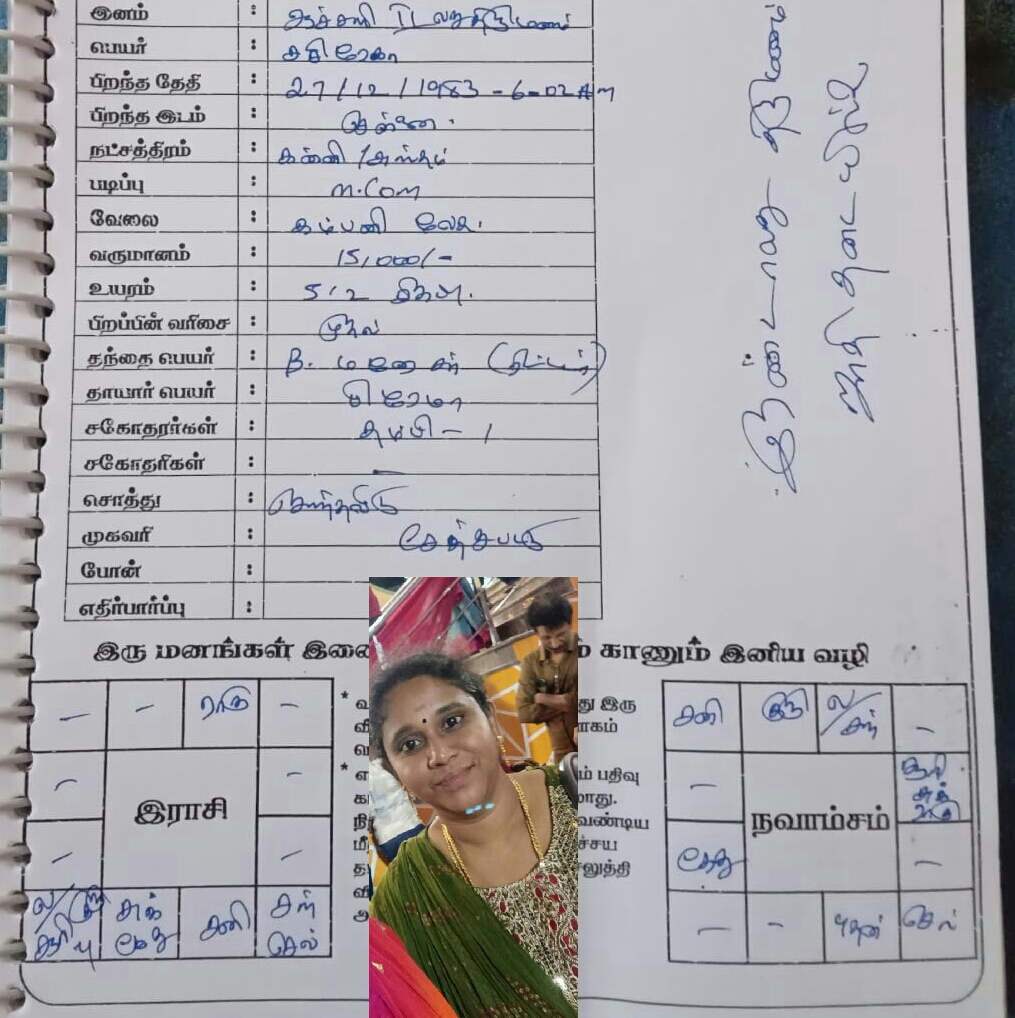 இனம் :
பெயர் : சசிரேகா
பிறந்த தேதி : 27/12/1983 - 6-02 Am
பிறந்த இடம் : சென்னை.
நட்சத்திரம் : கன்னி / அஸ்தம்
படிப்பு : M.Com
வேலை : கம்பனி வேலை.
வருமானம் : 15,000/-
உயரம் : 5'2
பிறப்பின் வரிசை : முதல்
தந்தை பெயர் : B. மனோகர்
தாயார் பெயர் : பிரேமா
சகோதரர்கள் : தம்பி - 1
சகோதரிகள் : —
சொத்து : சொந்தவீடு
முகவரி : சேத்துபட்டு
போன் :
எதிர்பார்ப்பு :
இரண்டாவது திருமணம்
ஜாதி தடையில்லை
இரு மனங்கள் காணும் இனிய வழி
— — ராகு —
— இராசி —
— —
ல/குரு சூரி பு சுக் கேது சனி சந் செவ்
* து இரு
பாகம்
* ம் பதிவு
மாது.
வேண்டிய
ச்சய
சலுத்தி
சனி குரு ல/சந் —
— நவாம்சம் சூரி சுக் ராகு
கேது —
— — புதன் செவ்